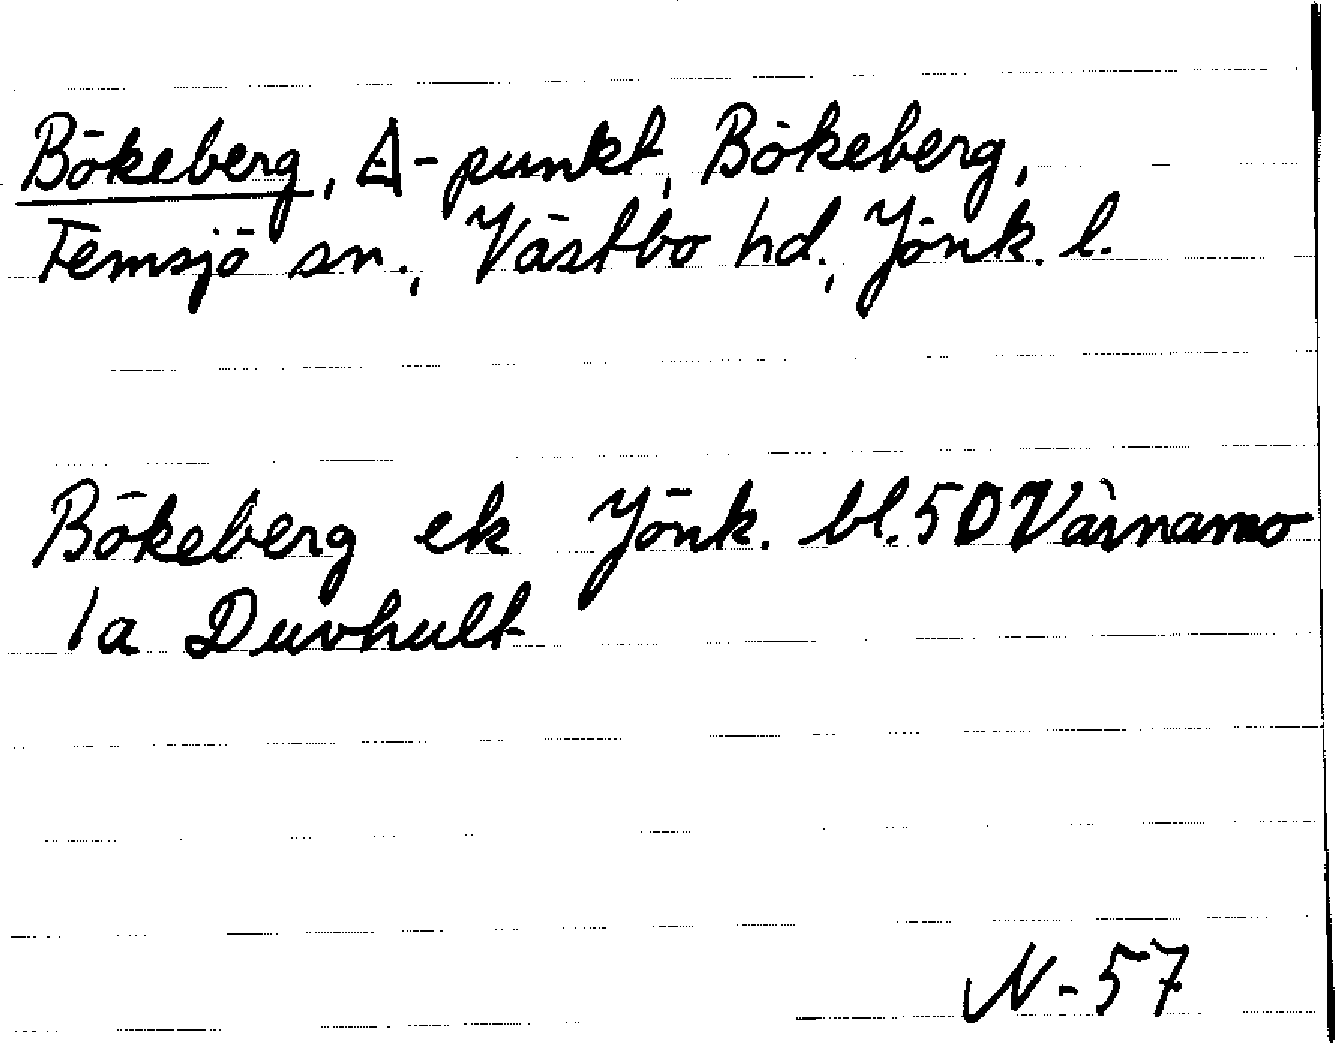 Bökeberg, Δ-punkt, Bökeberg,
Femsjö sn., Västbo hd., Jönk. l.
Bökeberg ek Jönk. bl. 5D Värnamo
1a Duvhult
N-57